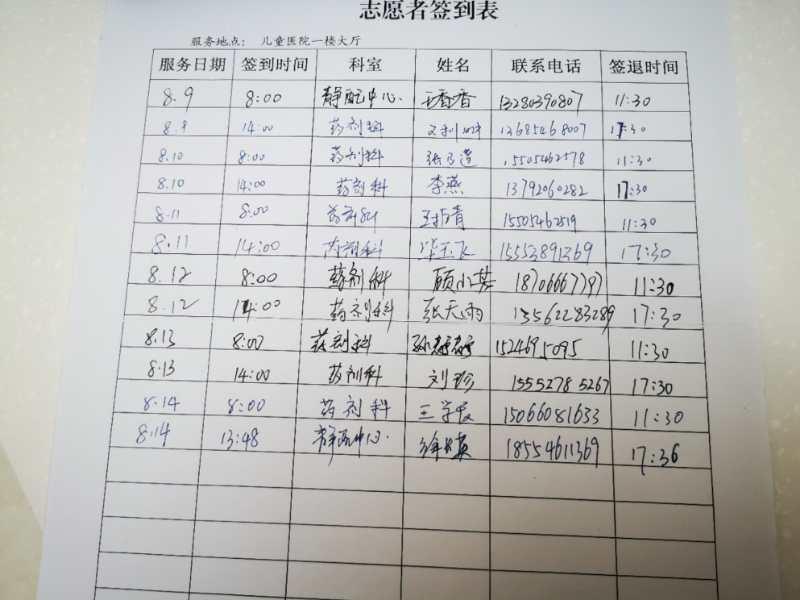 志愿者签到表
服务地点： 儿童医院一楼大厅
服务日期 签到时间 科室 姓名 联系电话 签退时间
8.9 8:00 静配中心. 王香香 13280390807 11:30
8.9 14:00 药剂科 13685468007 17:30
8.10 8:00 药剂科 15505462578 11:30
8.10 14:00 药剂科 李燕 13792060282 17:30
8.11 8:00 药剂科 15505462519 11:30
8.11 14:00 药剂科 毕玉飞 15552891269 17:30
8.12 8:00 药剂科 顾小芸 18706667797 11:30
8.12 14:00 药剂科 张天雨 15562283289 17:30
8.13 8:00 药剂科 1524695095 11:30
8.13 14:00 药剂科 刘珍 15552785267 17:30
8.14 8:00 药剂科 15066081633 11:30
8.14 13:48 静配中心. 18554611369 17:36